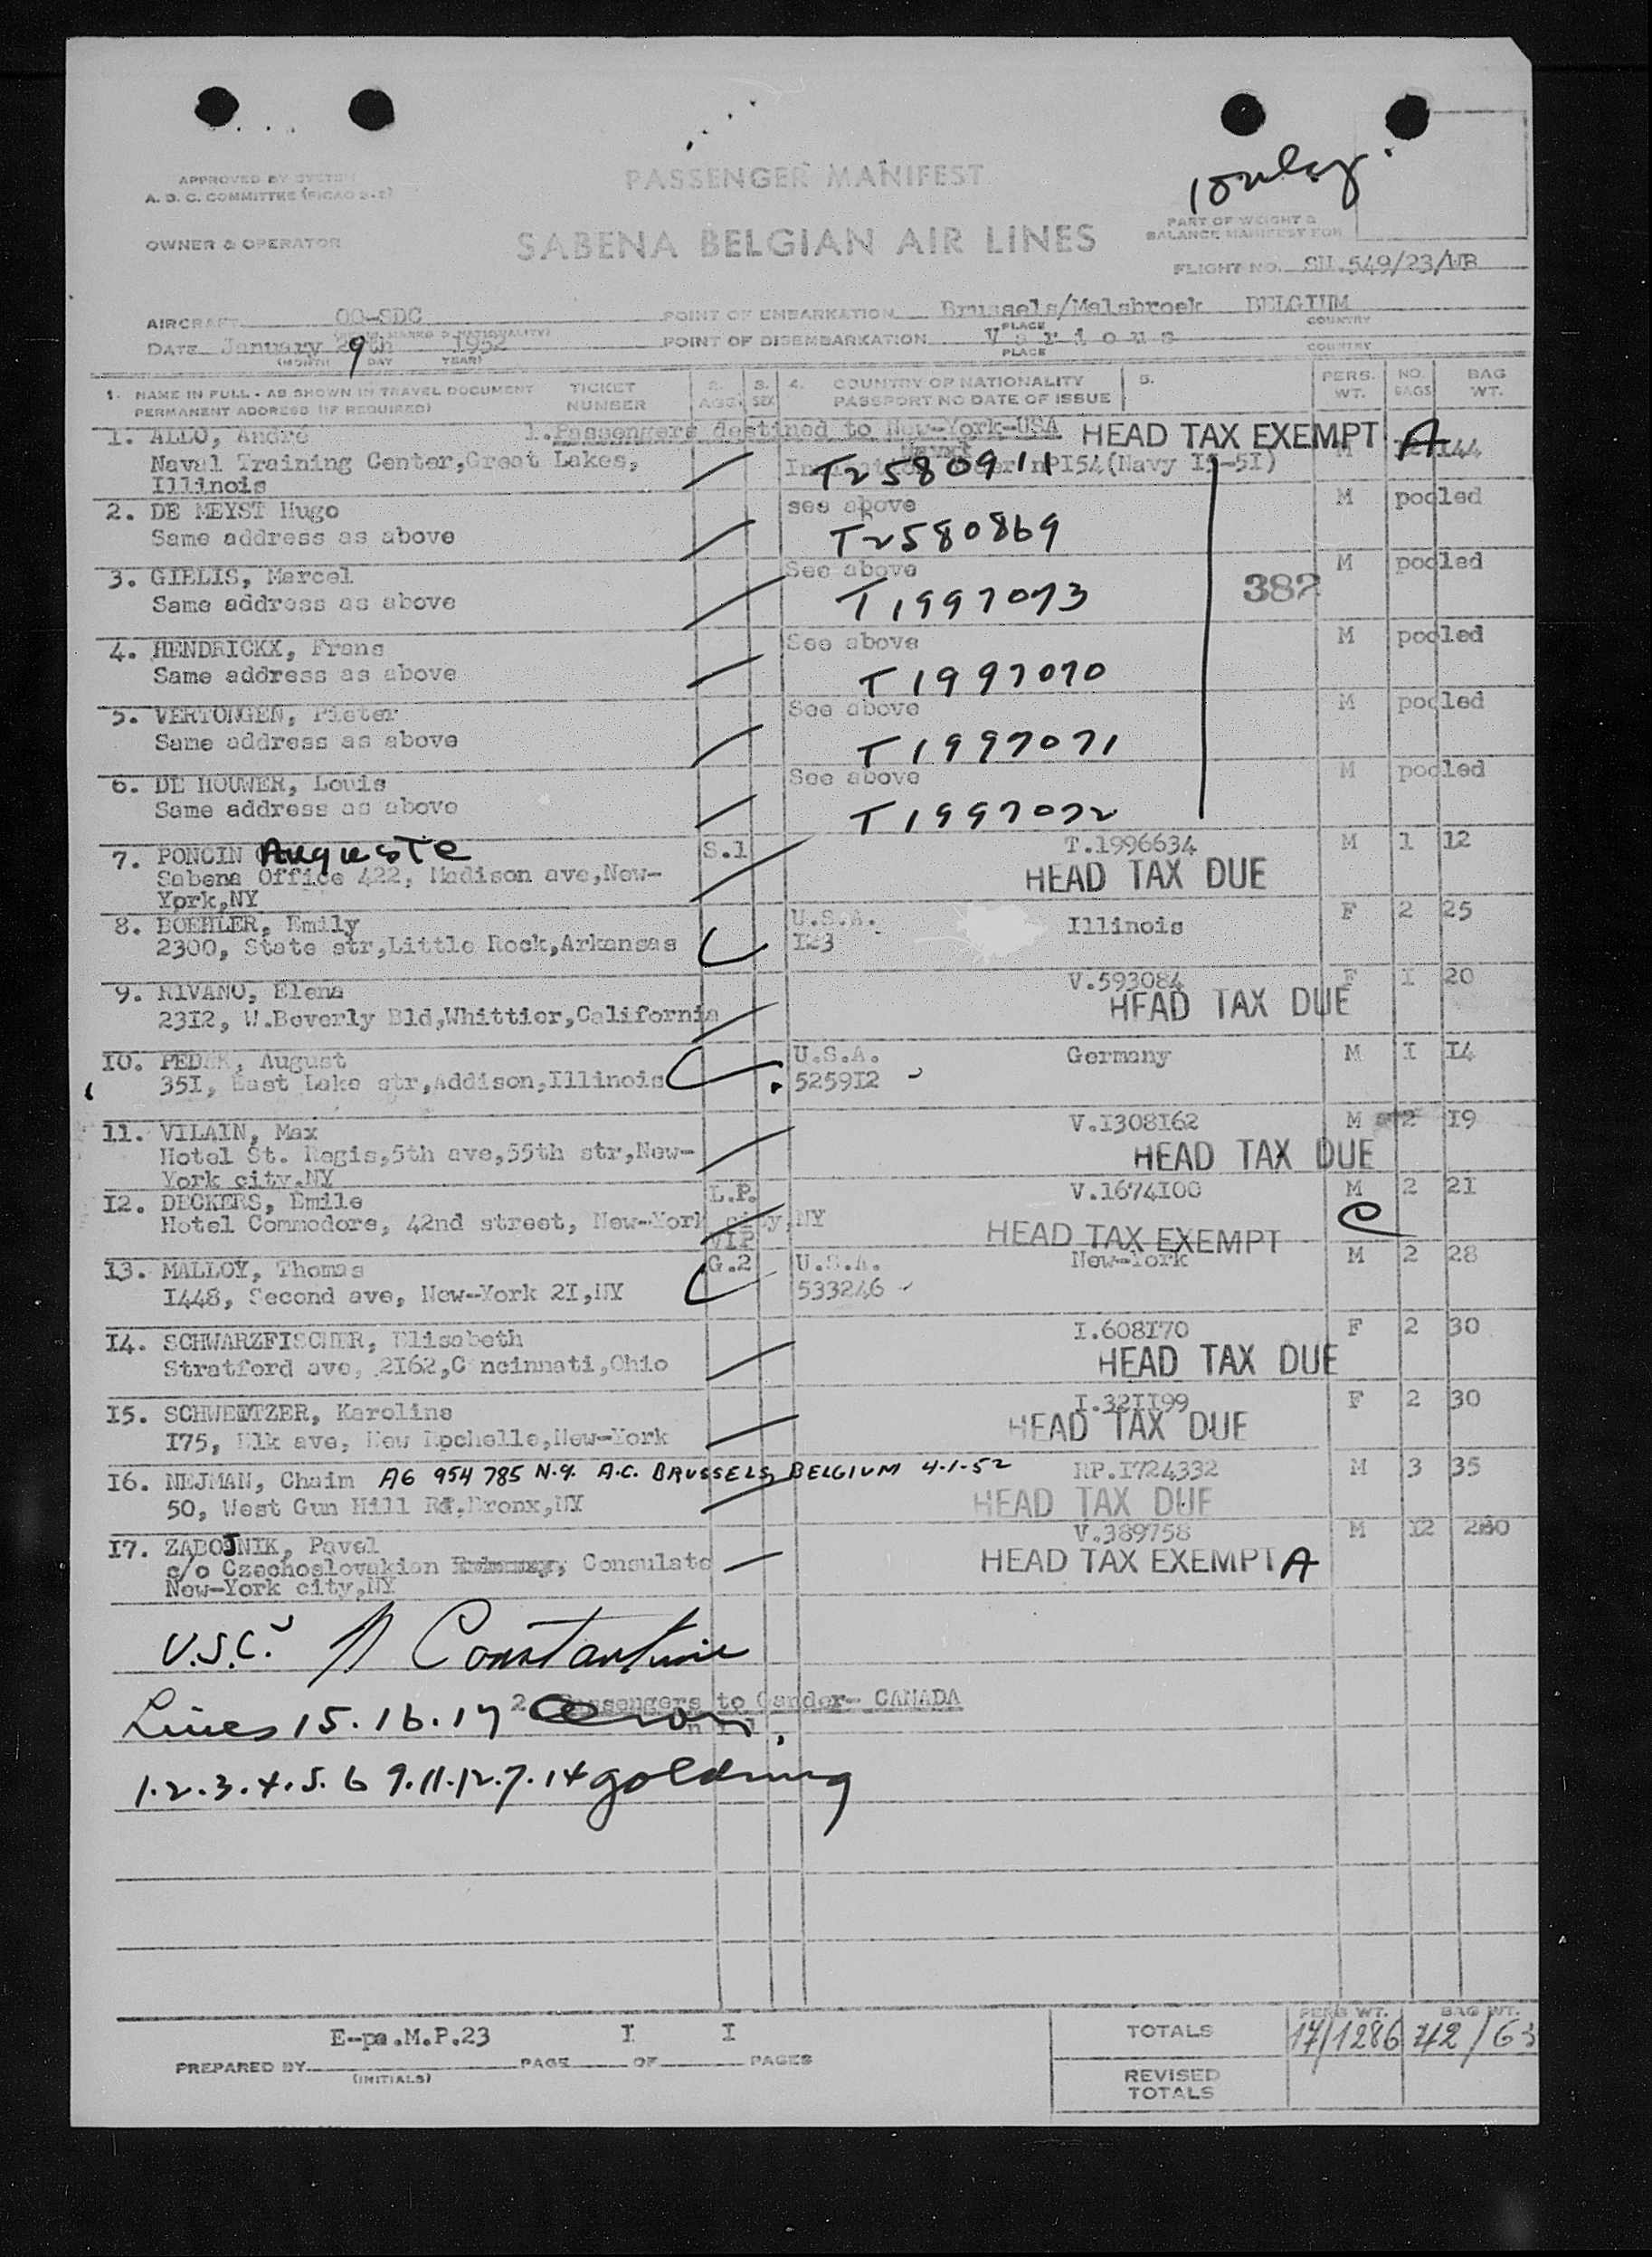 APPROVED BY SYSTEM
A. D. C. COMMITTEE (FICAO 2-2)
PASSENGER MANIFEST
OWNER & OPERATOR
SABENA BELGIAN AIR LINES
PART OF WEIGHT &
BALANCE MANIFEST FOR
FLIGHT NO. SN.549/23/WB
AIRCRAFT OO-SDC POINT OF EMBARKATION Brussels/Melsbroek BELGIUM
PLACE COUNTRY
DATE January 9th 1952 POINT OF DISEMBARKATION Various
(MONTH) DAY YEAR) PLACE COUNTRY
1. NAME IN FULL - AS SHOWN IN TRAVEL DOCUMENT TICKET 2. 3. 4. COUNTRY OF NATIONALITY 5. PERS. NO. BAG
PERMANENT ADDRESS (IF REQUIRED) NUMBER AGE SEX PASSPORT NO DATE OF ISSUE WT. BAGS WT.
1. ALLO, André 1.Passengers destined to New-York-USA HEAD TAX EXEMPT A
Naval Training Center,Great Lakes, T2580911 nº154(Navy I5-5I) M 144
Illinois
2. DE MEYST Hugo see above M pooled
Same address as above T2580869
3. GIELIS, Marcel See above M pooled
Same address as above T1997073 382
4. HENDRICKX, Frans See above M pooled
Same address as above T1997070
5. VERTONGEN, Pieter See above M pooled
Same address as above T1997071
6. DE HOUWER, Louis See above M pooled
Same address as above T1997072
7. PONCIN Auguste S.1 T.1996634 M 1 12
Sabena Office 422, Madison ave,New- HEAD TAX DUE
York,NY
8. BOEHLER, Emily U.S.A. Illinois F 2 25
2300, State str,Little Rock,Arkansas I23
9. RIVANO, Elena V.593084 F I 20
23I2, W.Beverly Bld,Whittier,California HEAD TAX DUE
IO. August U.S.A. Germany M I I4
35I, East Lake str,Addison,Illinois 5259I2
11. VILAIN, Max V.I308I62 M 2 I9
Hotel St. Regis,5th ave,55th str,New- HEAD TAX DUE
York city,NY
I2. DECKERS, Emile L.P. V.I674I00 M 2 21
Hotel Commodore, 42nd street, New-York city,NY HEAD TAX EXEMPT C
VIP
I3. MALLOY, Thomas G.2 U.S.A. New-York M 2 28
I448, Second ave, New-York 2I,NY 533246
I4. SCHWARZFISCHER, Elisabeth I.608I70 F 2 30
Stratford ave, 2I62,C ncinnati,Ohio HEAD TAX DUE
I5. SCHWEITZER, Karoline I.32II99 F 2 30
I75, Elk ave, New Rochelle,New-York HEAD TAX DUE
I6. NEJMAN, Chaim A6 954 785 N.Q. A.C. BRUSSELS, BELGIUM 4-1-52 RP.I724332 M 3 35
50, West Gun Hill Rd.Bronx,NY HEAD TAX DUE
I7. ZABOJNIK, Pavel V.389758 M I2 280
c/o Czechoslovakian Consulate HEAD TAX EXEMPT A
New-York city,NY
U.S.C. Constantine
2. Passengers to Gander- CANADA
Lines 15.16.17
n i l
1.2.3.4.5.6 9.11.12.7.14 Goldring
E-pa.M.P.23 I I
PREPARED BY PAGE OF PAGES
(INITIALS)
PERS WT. BAG WT.
TOTALS 17/1286 42/63
REVISED
TOTALS